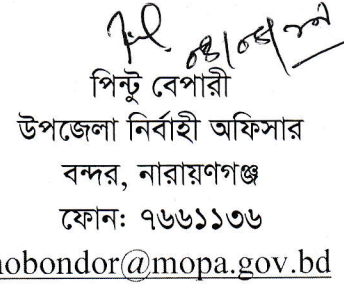 পিন্টু বেপারী
উপজেলা নির্বাহী অফিসার
বন্দর, নারায়ণগঞ্জ
ফোন: ৭৬৬১১৩৬
nobondor@mopa.gov.bd